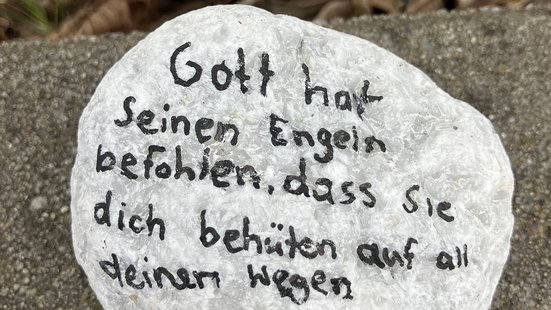 Gott hat
seinen Engeln
befohlen, dass sie
dich behüten auf all
deinen Wegen